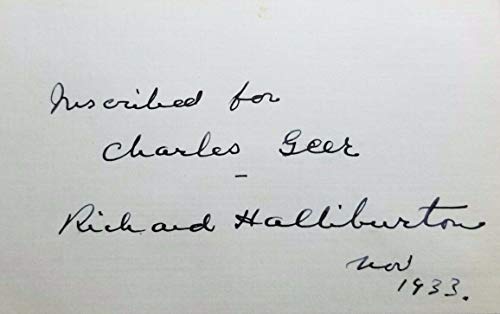 Inscribed for
Charles Geer
-
Richard Halliburton
Nov
1933.